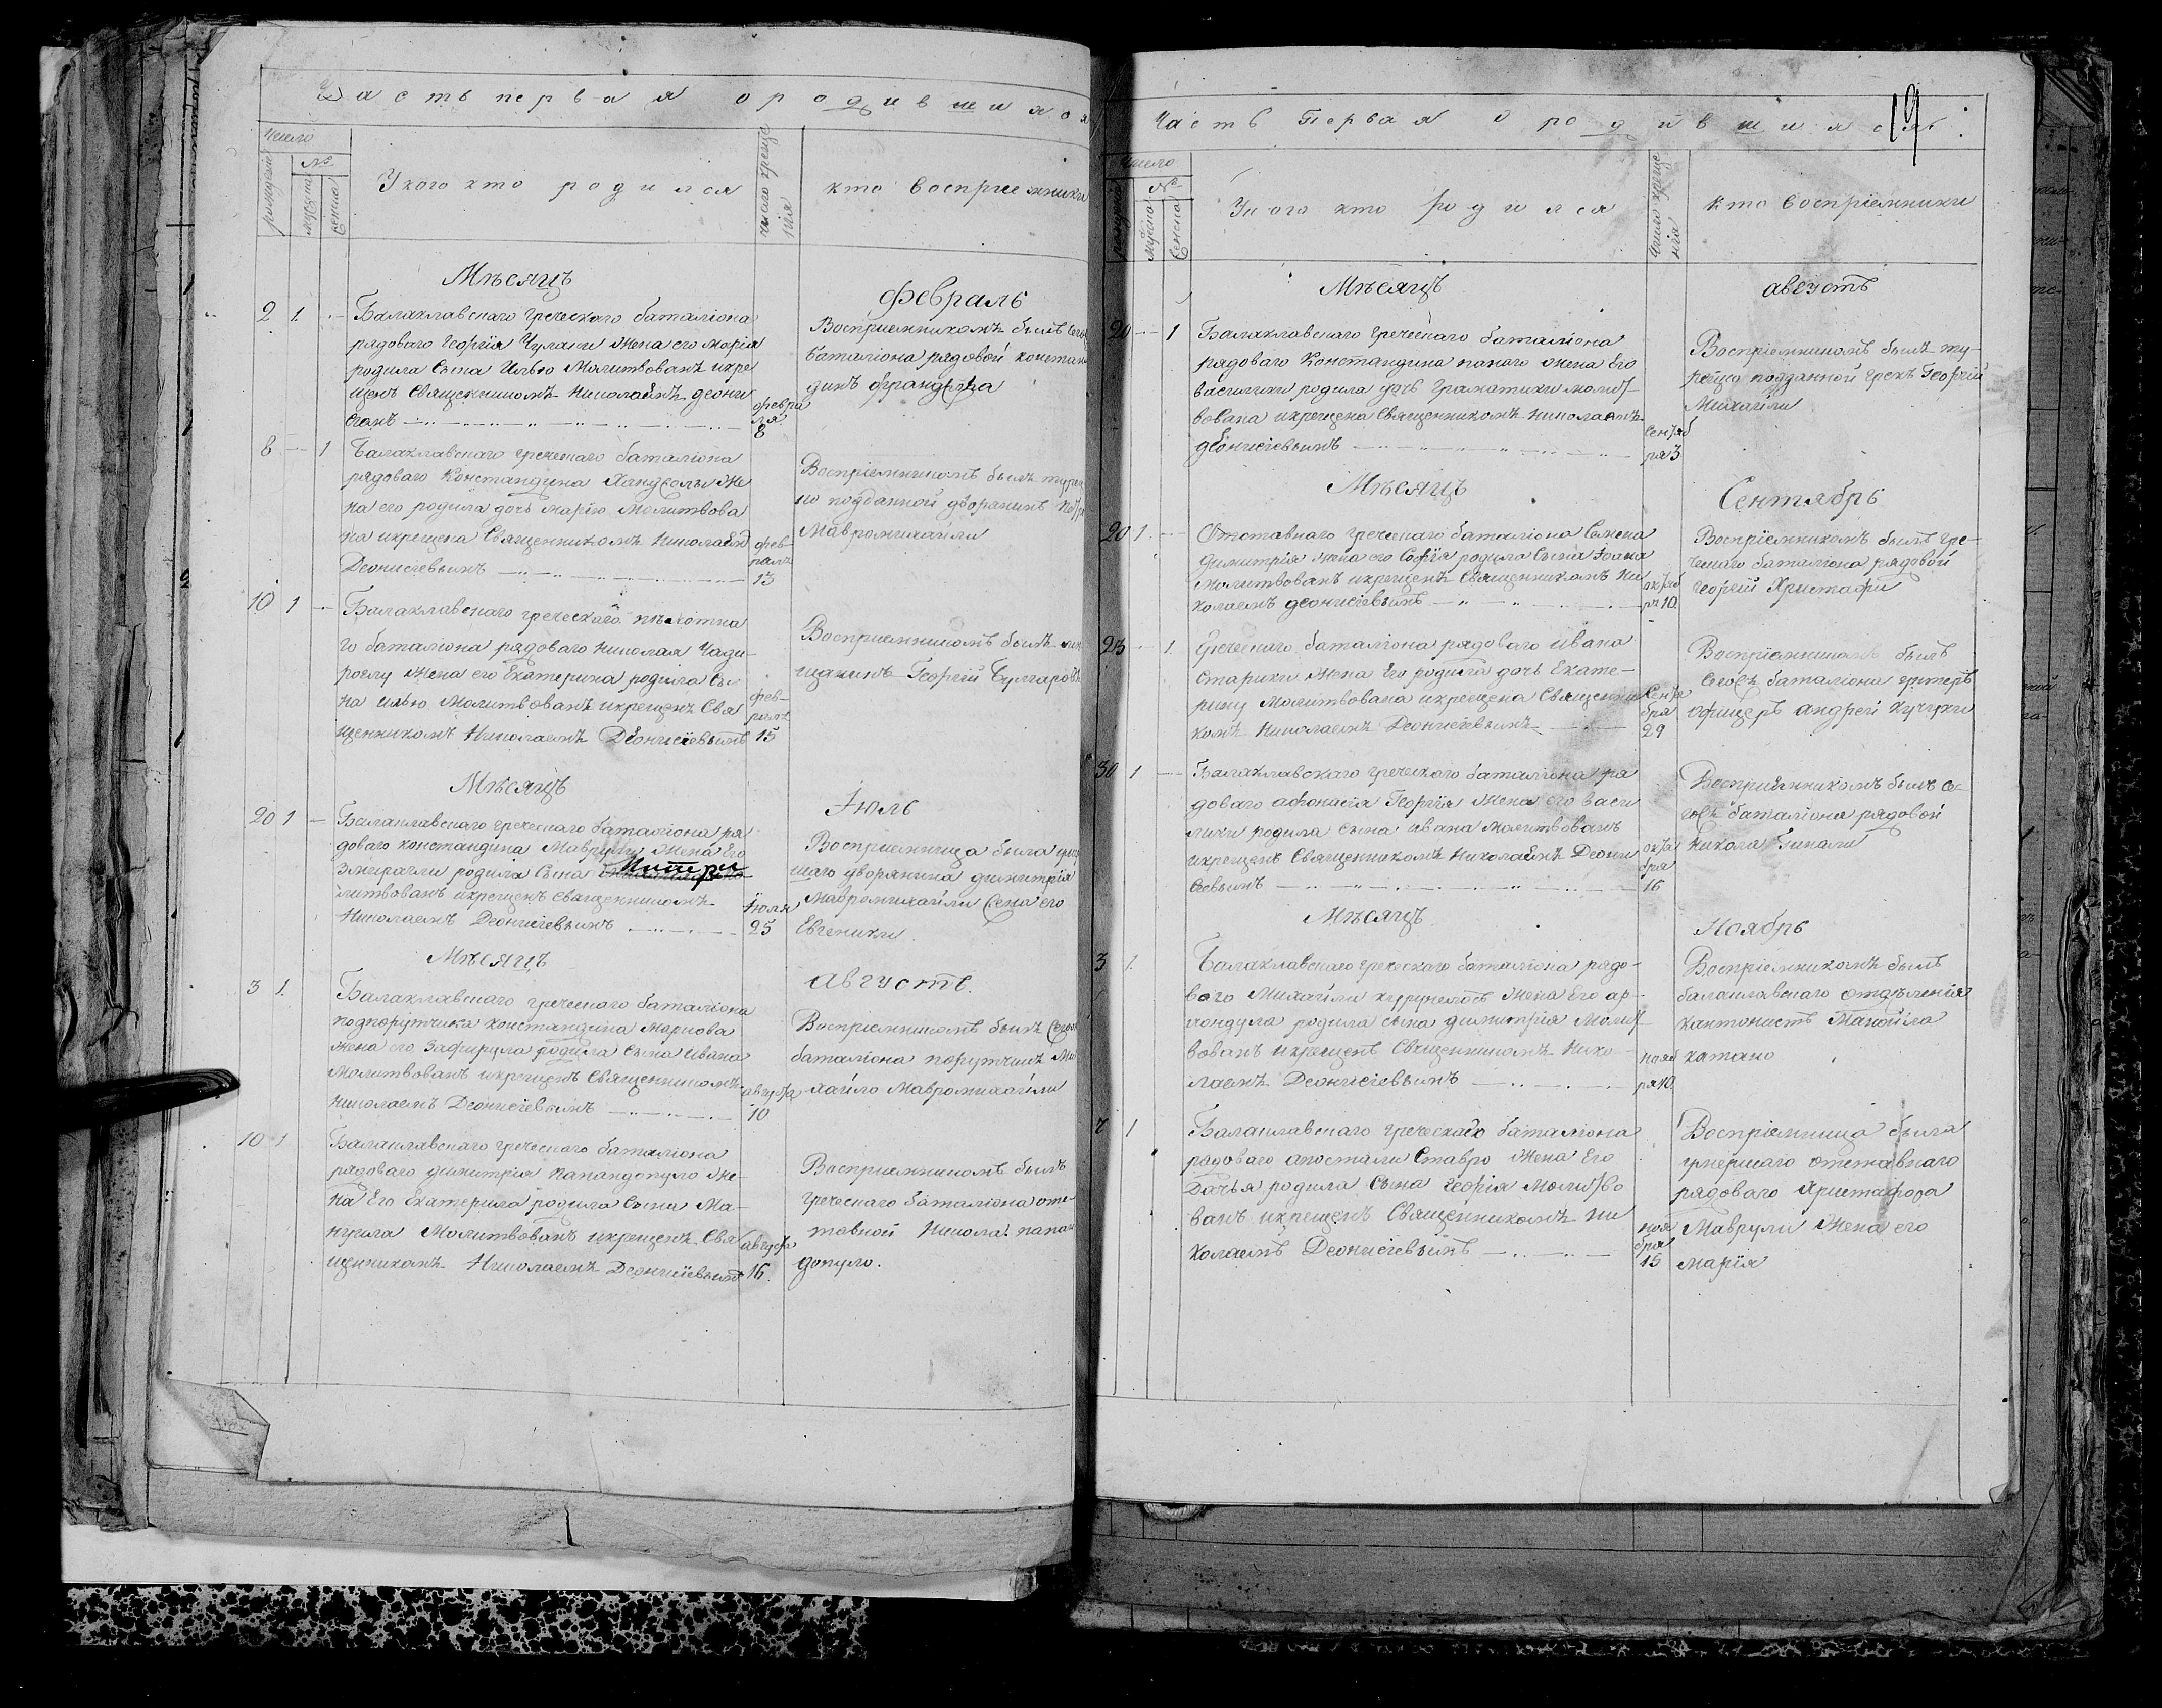 Часть первая о родившихся
Число
рожденiя
№
мужеска
женска
У кого кто родился
число креще
нiя
кто восприемники
Мѣсяцъ
февраль
2 1
Балаклавскаго греческаго баталiона
рядоваго Георгiя жена его марiя
родила сына Илью Молитвованъ икре
щенъ Священникомъ Николаемъ деони
феврa
ля
8
Восприемникомъ былъ сего
баталiона рядовой констан
динъ
8 1
Балаклавскаго греческаго баталiона
рядоваго Константина же
на его родила дочь марiю Молитвова
на икрещена Священникомъ Николаем
Деонисiевымъ
фев-
раля
13
Восприемникомъ былъ турец
ко подданной дворянинъ
Мавромихайли
10 1
Балаклавскаго греческаго пѣхотна
го баталiона рядоваго николая Чади-
роглу жена его Екатерина родила сы-
на илью Молитвованъ икрещенъ Свя
щенникомъ Николаемъ Деонисiевымъ
фев-
раля
15
Восприемникомъ былъ
щанинъ Георгiй Булгаровъ
Мѣсяцъ
Iюль
20 1
Балаклавскаго греческаго баталiона ря
доваго константина Маврули жена Его
родила сына Митри
литвованъ икрещенъ священникомъ
Николаемъ Деонисiевымъ
Iюля
25
Восприемница была
шаго дворянина димитрiя
Мавромихайли жена его
Евгеники
Мѣсяцъ
Августъ.
3 1.
Балаклавскаго греческаго баталiона
подпорутчика констандина Маркова
жена его Зафирула родила сына Ивана
Молитвованъ икрещенъ Священникомъ
николаемъ Деонисiевымъ
августа
10
Восприемникомъ былъ Сего
баталiона порутчикъ Ми
хайло Мавромихайли
10 1
Балаклавскаго греческаго баталiона
рядоваго димитрiя Папандопуло же-
на Его Екатерина родила сына Ма-
нуила Молитвованъ икрещенъ Свя
щенникомъ Николаемъ Деонисiевымъ
августа
16.
Восприемникомъ былъ
греческаго баталiона отс
тавной Никола папан
допуло.
19
Часть Первая о родившихся
Число
рожденiя
№
мужеска
Женска
У кого кто родился
Число креще
нiя
кто восприемники
Мѣсяцъ
августъ
20 1
Балаклавскаго греческаго баталiона
рядоваго Константина жена Его
василики родила дочь граматики молит-
вована икрещена Священникомъ николаемъ
деонисiевымъ
сентяб
ря 3
Восприемникомъ былъ ту-
рецко подданной грекъ Георгiй
Михайли
Мѣсяцъ
Сентябрь
20 1
Отставнаго греческаго баталiона
димитрiя жена его Софiя родила сына Iоана
Молитвованъ икрещенъ Священникомъ Ни
колаемъ деонисiевымъ
октяб
ря 10.
Восприемникомъ былъ гре-
ческаго баталiона рядовой
георгiй Христафи
23 1
Греческаго баталiона рядоваго ивана
Старики жена Его родила дочь Екате-
рину Молитвована икрещена Священни
комъ николаемъ Деонисiевымъ
Сентя
бря
29
Восприемникомъ былъ
Сеговъ баталiона унтеръ
офицеръ андрей кучуки
30 1
Балаклавскаго греческаго баталiона ря
доваго афонасiя Георгiя жена его васи
лики родила сына ивана Молитвованъ
икрещенъ Священникомъ Николаемъ Деони
сiевымъ
октя
бря
16
Восприемникомъ былъ се-
говъ баталiона рядовой
Никола Бинали
Мѣсяцъ
Ноябрь
3 1.
Балаклавскаго греческаго баталiона рядо-
ваго Михайли жена Его ар-
хондула родила сына димитрiя Молит
вованъ икрещенъ Священникомъ Нико
лаемъ Деонисiевымъ
нояб
ря 10.
Восприемникомъ былъ
балаклавскаго отдѣленiя
кантонистъ Манойла
катано
7 1
Балаклавскаго греческаго баталiона
рядоваго апостали Ставро жена Его
родила сына георгiя молитво
ванъ икрещенъ Священникомъ Ни
колаемъ Деонисiевымъ
ноя
бря
15
Восприемница была
отставнаго
рядоваго Христафора
Маврули жена его
марiя